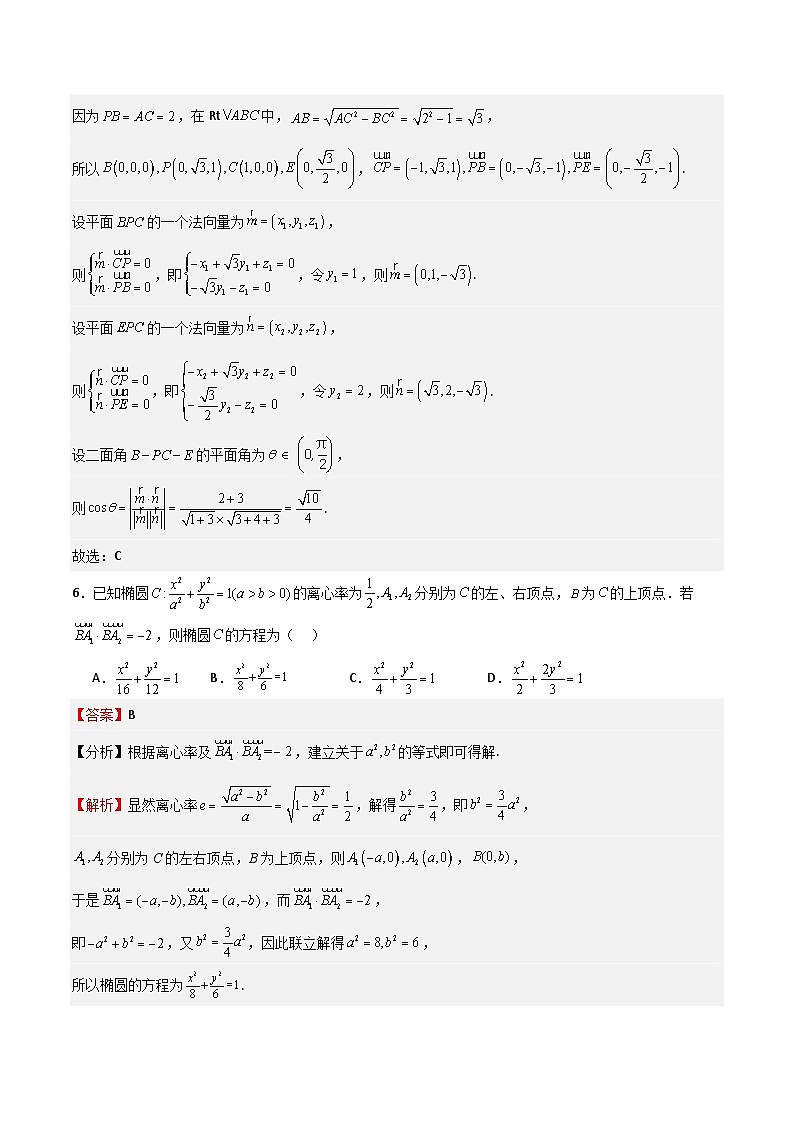 因为 PB = AC = 2，在 Rt▽ABC 中，AB = √(AC² − BC²) = √(2² − 1) = √3，
所以 B(0,0,0), P(0, √3, 1), C(1,0,0), E(0, √3/2, 0)，CP = (−1, √3, 1), PB = (0, −√3, −1), PE = (0, −√3/2, −1).
设平面 BPC 的一个法向量为 m = (x₁, y₁, z₁)，
则 {m·CP = 0, m·PB = 0，即 {−x₁ + √3y₁ + z₁ = 0, −√3y₁ − z₁ = 0，令 y₁ = 1，则 m = (0, 1, −√3).
设平面 EPC 的一个法向量为 n = (x₂, y₂, z₂)，
则 {n·CP = 0, n·PE = 0，即 {−x₂ + √3y₂ + z₂ = 0, −√3/2 y₂ − z₂ = 0，令 y₂ = 2，则 n = (√3, 2, −√3).
设二面角 B − PC − E 的平面角为 θ ∈ (0, π/2)，
则 cosθ = |m·n / |m||n|| = (2+3)/(√(1+3) × √(3+4+3)) = √10/4.
故选：C
6．已知椭圆 C: x²/a² + y²/b² = 1(a > b > 0) 的离心率为 1/2, A₁, A₂ 分别为 C 的左、右顶点，B 为 C 的上顶点．若
BA₁·BA₂ = −2，则椭圆 C 的方程为（ ）
A．x²/16 + y²/12 = 1 B．x²/8 + y²/6 = 1 C．x²/4 + y²/3 = 1 D．x²/2 + 2y²/3 = 1
【答案】B
【分析】根据离心率及 BA₁·BA₂ = −2，建立关于 a², b² 的等式即可得解．
【解析】显然离心率 e = √(a² − b²)/a = √(1 − b²/a²) = 1/2，解得 b²/a² = 3/4，即 b² = 3/4 a²，
A₁, A₂ 分别为 C 的左右顶点，B 为上顶点，则 A₁(−a, 0), A₂(a, 0)，B(0, b)，
于是 BA₁ = (−a, −b), BA₂ = (a, −b)，而 BA₁·BA₂ = −2，
即 −a² + b² = −2，又 b² = 3/4 a²，因此联立解得 a² = 8, b² = 6，
所以椭圆的方程为 x²/8 + y²/6 = 1.